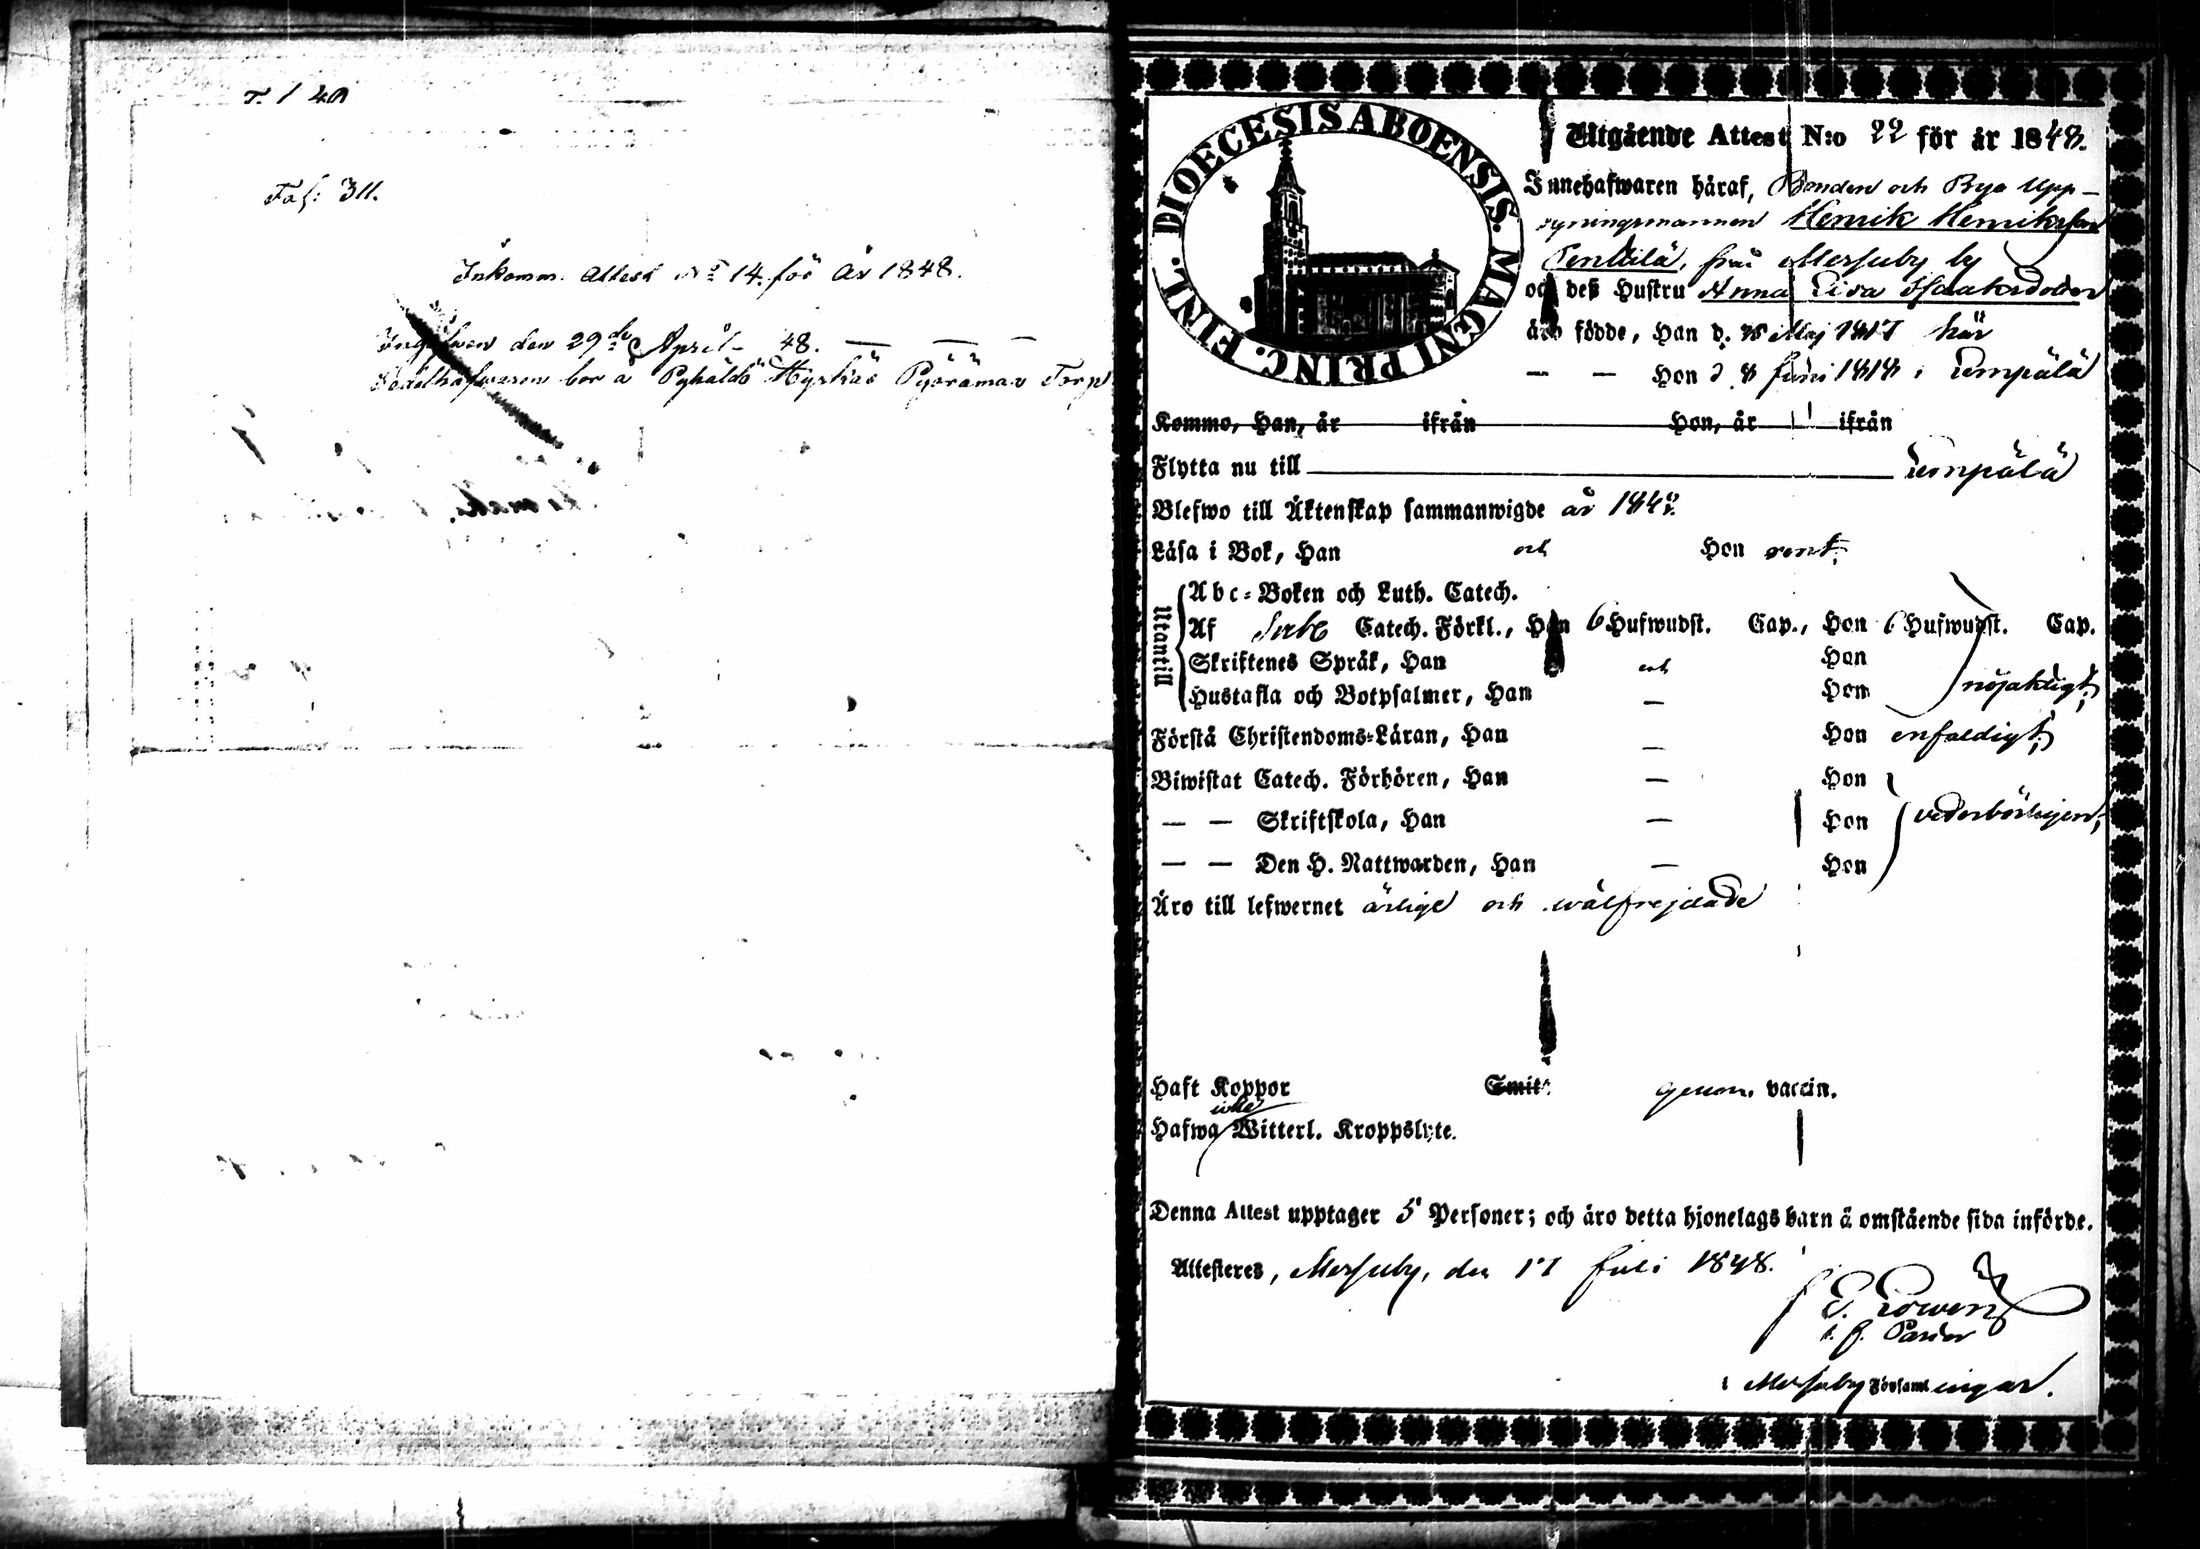 Fol: 311.
Inkomm. Attest No 14. för år 1848.
Ingifven den 29de April 48. — — —
bor å Torp
DIOECESIS ABOENSIS. MAGNI PRINC. FINL.
Utgående Attest N:o 22 för år 1848.
Innehafwaren häraf, Bonden och Bya Upp-
syningsmannen Henrik Henriksson
Penttilä, från Messuby by
och deß Hustru Anna Lisa Isaaksdotter
äro födde, Han d. Maj 1817 här
— — Hon d 8 Juni 1818 i Lempälä
Kommo, Han, år ifrån Hon, år ifrån
Flytta nu till Lempälä
Blefwo till Äktenskap sammanwigde år
Läsa i Bok, Han och Hon rent;
Utantill
Abc-Boken och Luth. Catech.
Af Catech. Förkl., Han 6 Hufwudst. Cap., Hon 6 Hufwudst. Cap.
Skriftenes Språk, Han och Hon
Hustafla och Botpsalmer, Han — Hon nöjaktigt;
Förstå Christendoms-Läran, Han — Hon enfaldigt;
Biwistat Catech. Förhören, Han — Hon
— — Skriftskola, Han — Hon vederbörligen;
— — Den H. Nattwarden, Han — Hon
Äro till lefwernet ärlige och wälfrejdade
Haft Koppor Smitt. genom vaccin.
Hafwa icke Witterl. Kroppslyte.
Denna Attest upptager 5 Personer; och äro detta hjonelags barn å omstående sida införde.
Attesteres, Messuby, den 17 Juli 1848.
i Messuby Församlingar.